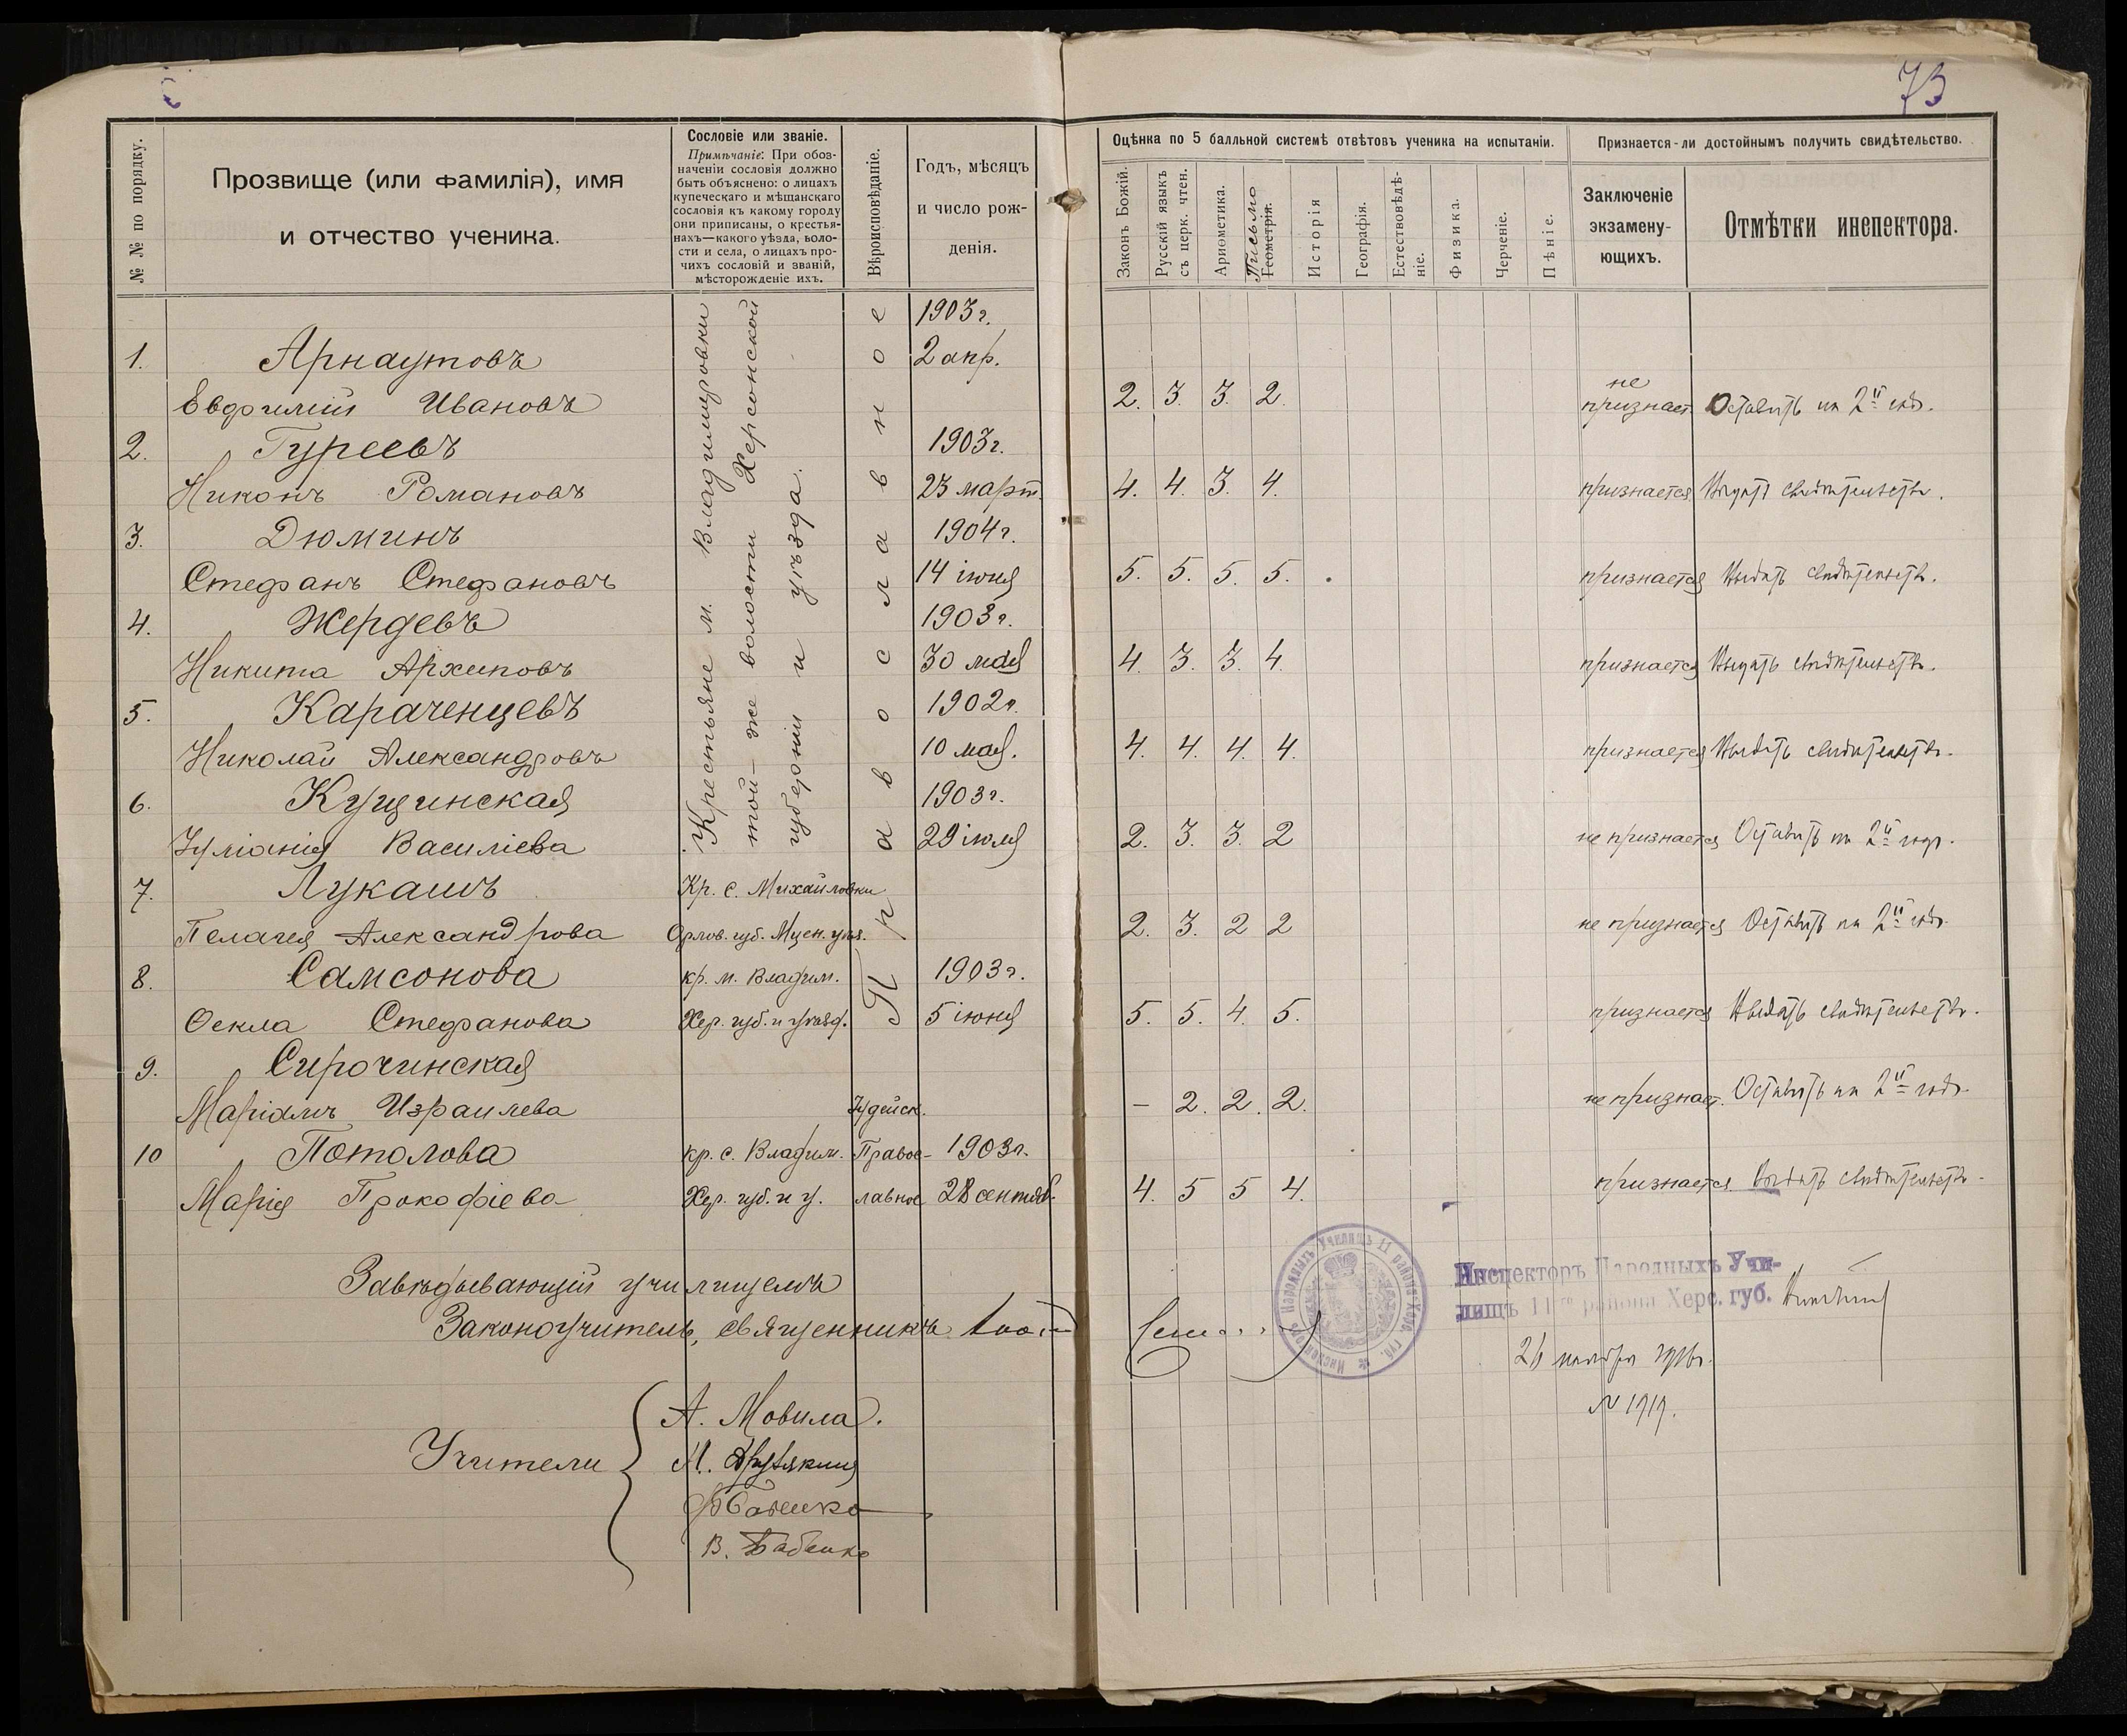 73
№ № по порядку.
Прозвище (или фамилія), имя
и отчество ученика.
Сословіе или званіе.
Примѣчаніе: При обоз-
наченіи сословія должно
быть объяснено: о лицахъ
купеческаго и мѣщанскаго
сословія къ какому городу
они приписаны, о крестья-
нахъ—какого уѣзда, воло-
сти и села, о лицахъ про-
чихъ сословій и званій,
мѣсторожденіе ихъ.
Вѣроисповѣданіе.
Годъ, мѣсяцъ
и число рож-
денія.
Оцѣнка по 5 балльной системѣ отвѣтовъ ученика на испытаніи.
Законъ Божій.
Русскій языкъ
съ церк. чтен.
Ариѳметика.
Письмо
Геометрія.
Исторія
Географія.
Естествовѣдѣ-
ніе.
Физика.
Черченіе.
Пѣніе.
Признается-ли достойнымъ получить свидѣтельство.
Заключеніе
экзамену-
ющихъ.
Отмѣтки инспектора.
Крестьяне м. Владимировки
той-же волости Херсонской
губерніи и уѣзда.
Православное
1903 г.
1. Арнаутовъ 2 апр.
Евфимій Ивановъ 2. 3. 3. 2. не признает Оставить на 2й годъ.
2. Гуреевъ 1903 г.
Никонъ Романовъ 23 март 4. 4. 3. 4. признается Выдать свидѣтельство.
3. Дюминъ 1904 г.
Стефанъ Стефановъ 14 іюня 5. 5. 5. 5. признается Выдать свидѣтельств.
4. Жердевъ 1903 г.
Никита Архиповъ 30 мая 4. 3. 3. 4. признается Выдать свидѣтельств.
5. Караченцевъ 1902 г.
Николай Александровъ 10 мая. 4. 4. 4. 4. признается Выдать свидѣтельств.
6. Кущинская 1903 г.
Іуліанія Василіева 29 іюля 2. 3. 3. 2 не признается Оставить на 2й годъ.
7. Лукашъ Кр. с. Михайловки
Пелагея Александрова Орлов. губ. Мцен. уѣз. 2. 3. 2 2 не признается Оставить на 2й годъ.
8. Самсонова кр. м. Владим. 1903 г.
Ѳекла Стефанова Хер. губ. и уѣзд. 5 іюня 5. 5. 4. 5. признается Выдать свидѣтельств.
9. Сирочинская
Маріамъ Израилева Іудейск. – 2. 2. 2. не признает. Оставить на 2й годъ.
10 Потолова кр. с. Владим. Правос- 1903 г.
Марія Прокофіева Хер. губ. и у. лавное 28 сентяб. 4. 5 5 4. признается Выдать свидѣтельств.
Завѣдывающій училищемъ
Законоучитель, священникъ
Инспекторъ Народныхъ Учи-
лищъ 11го района Херс. губ.
26 ноября 1916г.
№ 1919.
Учители
А. Мовила.
М.
В. Бабенко